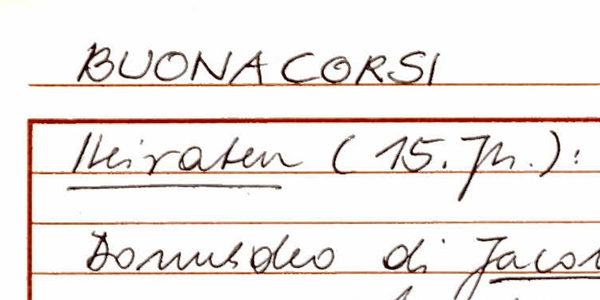 BUONACORSI
Heiraten (15. Jh.):
Domusdeo di Jaco